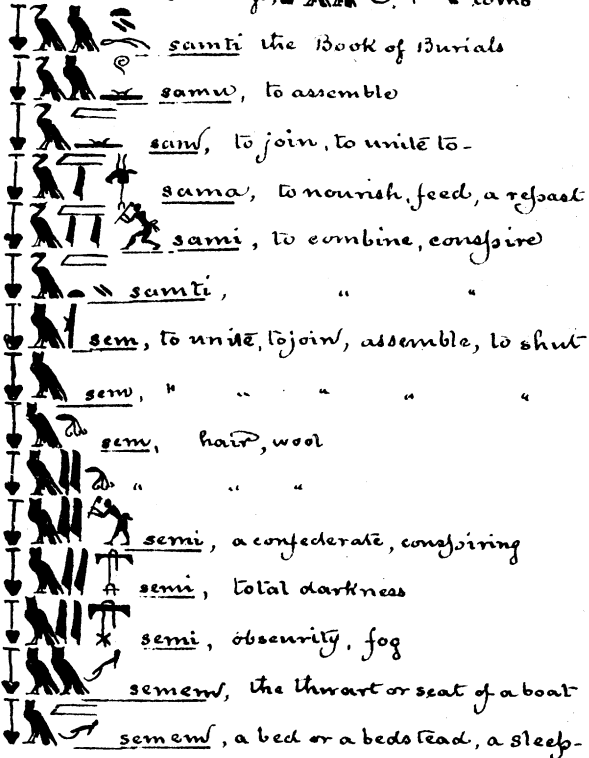 tomb
samti the Book of Burials
samu, to assemble
sam, to join, to unite to-
sama, to nourish, feed, a repast
sami, to combine, conspire
samti, " "
sem, to unite, to join, assemble, to shut
sem, " " " " "
sem, hair, wool
" " "
semi, a confederate, conspiring
semi, total darkness
semi, obscurity, fog
semem, the thwart or seat of a boat
semem, a bed or a bedstead, a sleep-